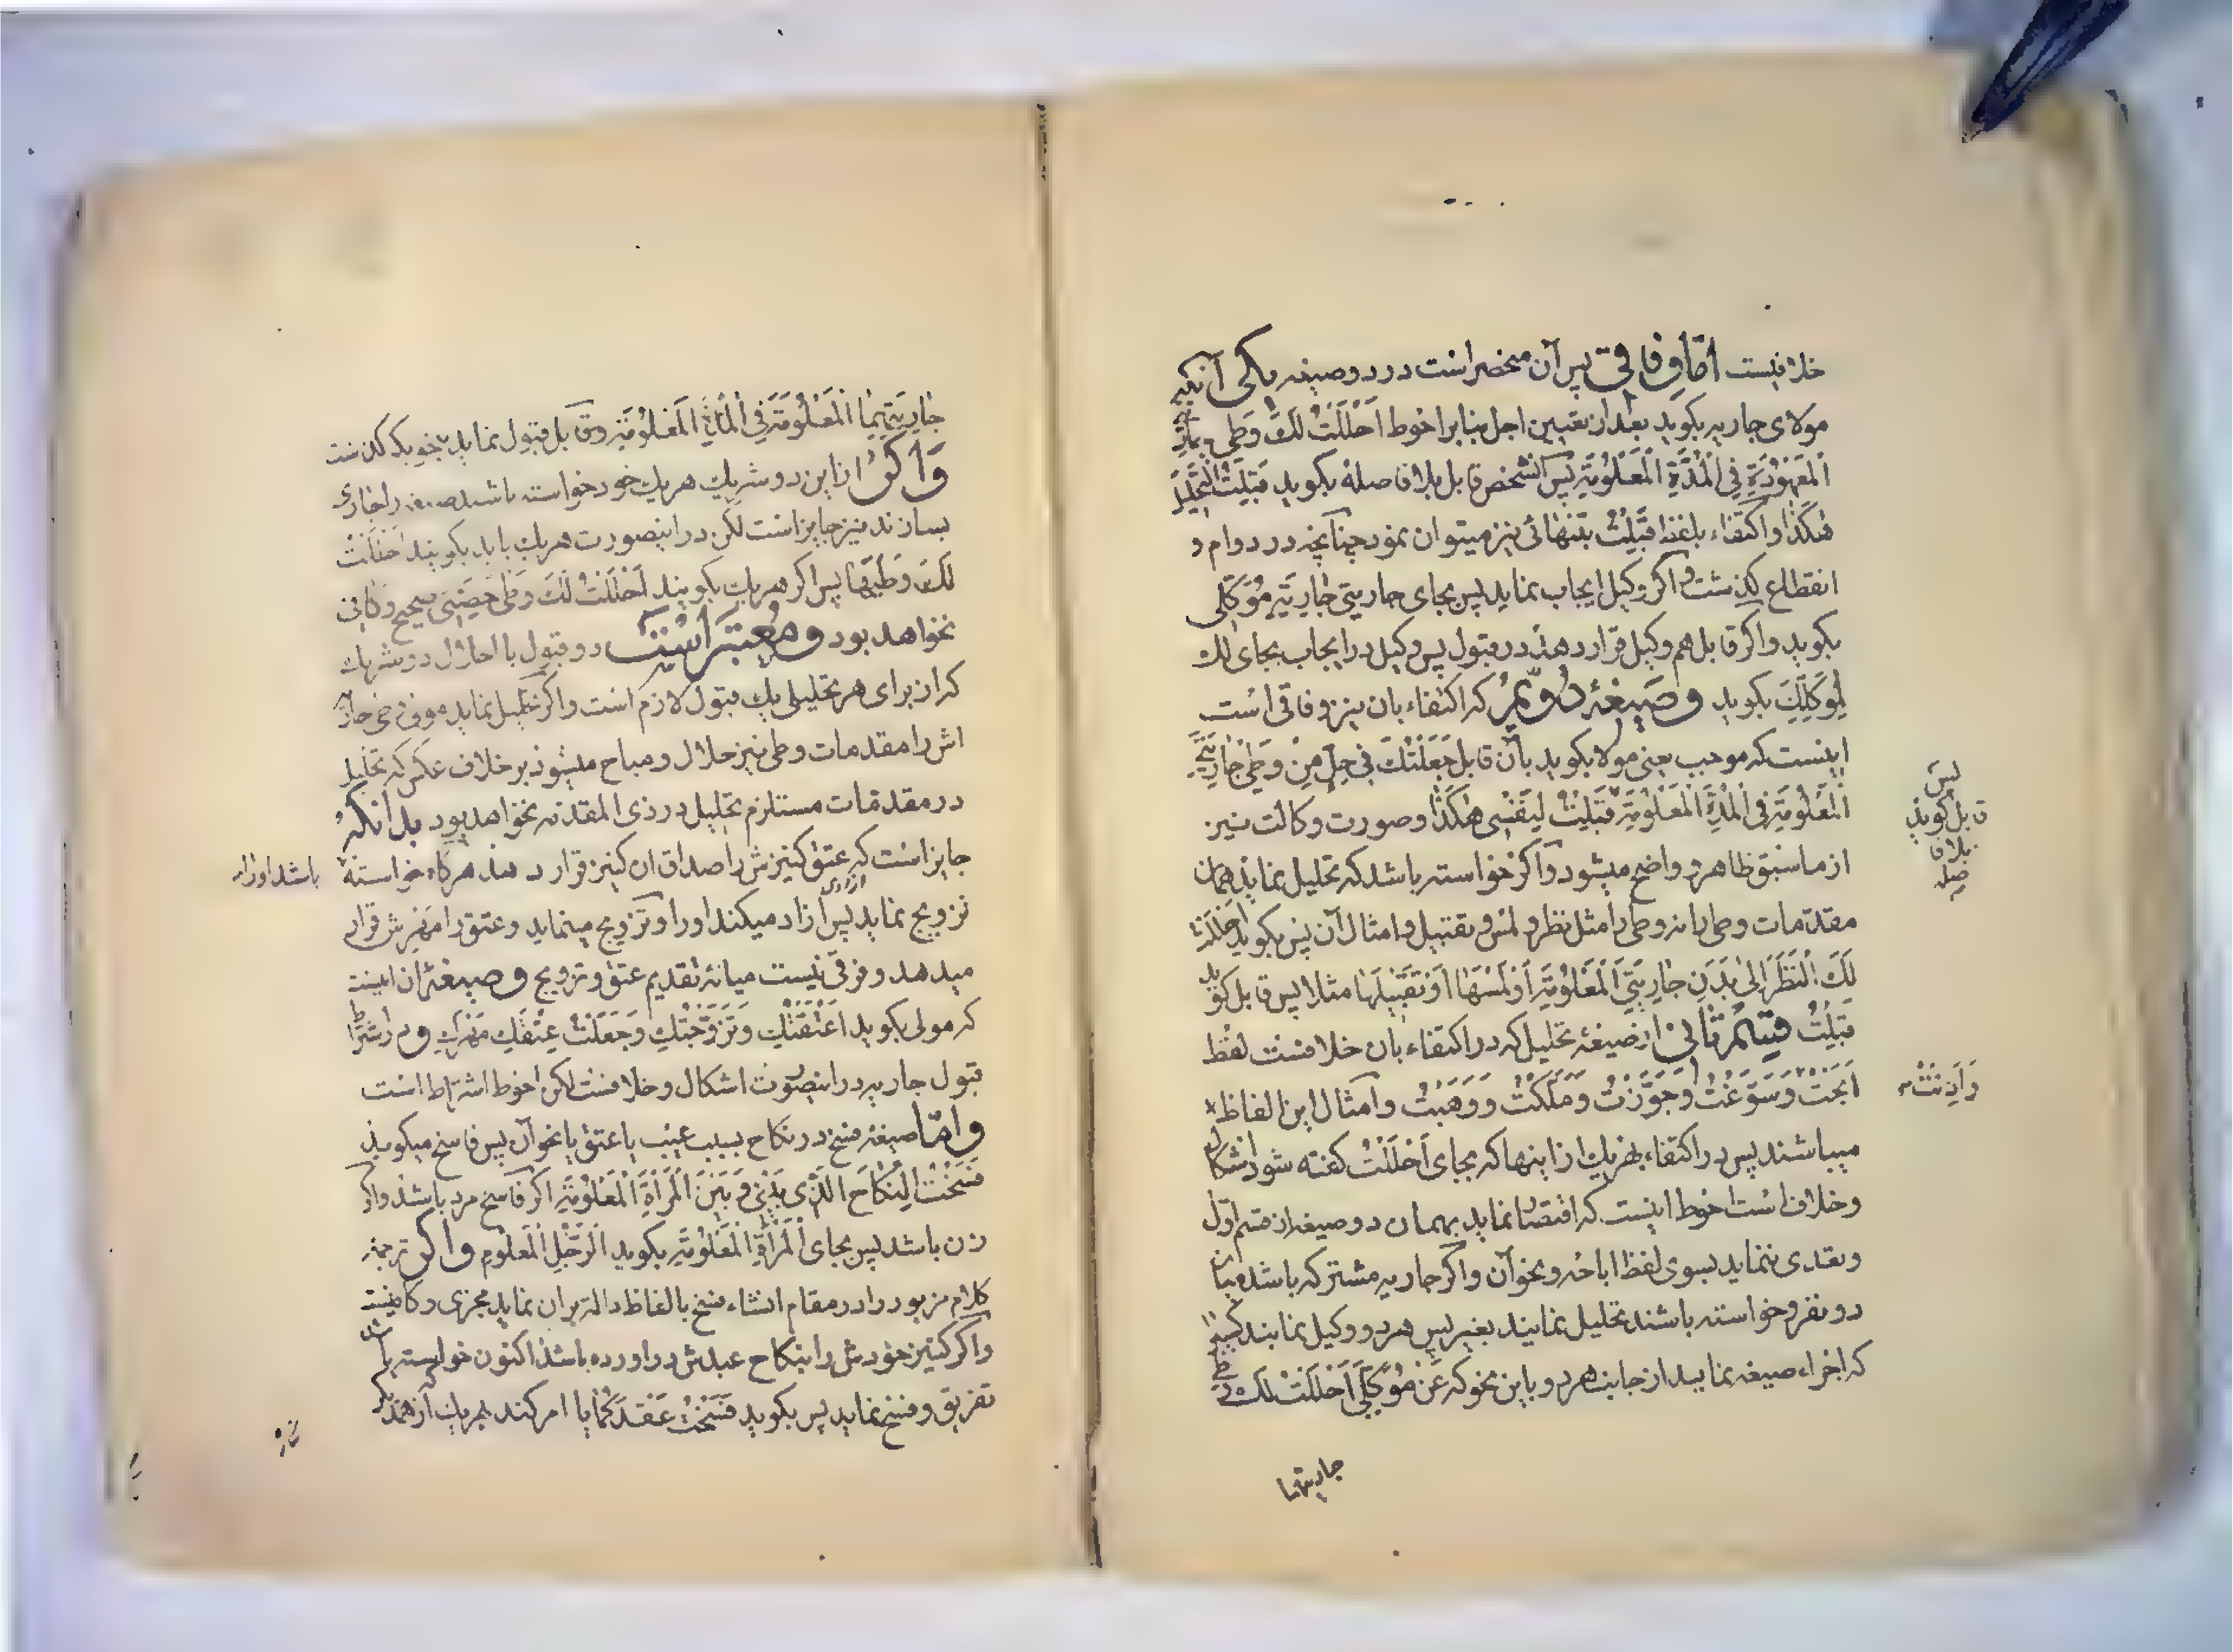 خلافیست اما وفاقی پس آن منحصر است در دو صیغه یکی آنکه
مولای جاریه بکوید بعد از تعیین اجل بنا بر احوط اَحْلَلْتُ لَكَ وَطْیَ جاریتی
اَلْمَعْهُودَةِ فِی الْمُدَّةِ الْمَعْلُومَةِ پس آنشخص قابل بلا فاصله بکوید قَبِلْتُ التَّحْلیلَ
هٰکَذا و اکتفاء بلفظ قَبِلْتُ بتنهائی نیز میتوان نمود چنانچه در دوام و
انقطاع کذشت و اکر وکیل ایجاب نماید پس بجای جاریتی جٰارِیَةِ مُوَکِّلی
بکوید و اکر قابل هم وکیل قرار دهد در قبول پس وکیل در ایجاب بجای لك
لِمُوَکِّلِكَ بکوید و صیغهٔ دویّم که اکتفاء بان نیز وفاقی است
اینست که موجب یعنی مولا بکوید بآن قابل جَعَلْتُكَ فی حِلٍّ مِنْ وَطْیِ جٰارِیَتی
اَلْمَعْلُومَةِ فِی الْمُدَّةِ الْمَعْلُومَةِ قَبِلْتُ لِنَفْسی هٰکَذا و صورت وکالت نیز
پس قابل کوید بلا فاصله
از ما سبق ظاهر و واضح میشود و اکر خواسته باشد که تحلیل نماید همان
مقدمات وطی را نه وطی را مثل نظر و لمس و تقبیل و امثال آن پس بکوید اَحْلَلْتُ
لَكَ النَّظَرَ اِلیٰ بَدَنِ جٰارِیَتِیَ الْمَعْلُومَةِ اَوْ لَمْسَهٰا اَوْ تَقْبیلَهٰا مثلا پس قابل کوید
قَبِلْتُ قسم ثانی از صیغهٔ تحلیل که در اکتفاء بان خلافست لفظ
اَبَحْتُ وَ سَوَّغْتُ وَ جَوَّزْتُ وَ مَلَّکْتُ وَ وَهَبْتُ و امثال این الفاظ
وَ اَذِنْتُ
میباشند پس در اکتفاء بهریك از اینها که بجای اَحْلَلْتُ کفته شود اشکال
و خلاف است احوط اینست که اقتصار نماید بهمان دو صیغه از قسم اول
و تعدی ننماید بسوی لفظ اباحه و نحو آن و اکر جاریه مشترکه باشد میان
دو نفر و خواسته باشند تحلیل نمایند بغیر پس هر دو وکیل نمایند کسیرا
که اجراء صیغه نماید از جانب هر دو باین نحو که عَنْ مُوَکِّلَیَّ اَحْلَلْتُ لَكَ وطی
جاریتهما
جٰارِیَتِهِمَا الْمَعْلُومَةِ فِی الْمُدَّةِ الْمَعْلُومَةِ و قابل قبول نماید بنحویکه کذشت
و اکر از این دو شریك هر یك خود خواسته باشند صیغه را جاری
بسازند نیز جایز است لکن در اینصورت هر یك باید بکویند اَحْلَلْتُ
لَكَ وَطْیَهٰا پس اکر هر یك بکویند اَحْلَلْتُ لَكَ وَطْیَ حِصَّتی صحیح و کافی
نخواهد بود و معتبر است دو قبول با احلال دو شریك
که از برای هر تحلیلی یك قبول لازم است و اکر تحلیل نماید مولی وطی جاریه
اش را مقدمات وطی نیز حلال و مباح میشود بر خلاف عکس که تحلیل
در مقدمات مستلزم تحلیل در ذی المقدمه نخواهد بود بدانکه
جایز است که عتق کنیزش را صداق ان کنیز قرار دهد هرکاه خواسته باشد او را
تزویج نماید پس آزاد میکند او را و تزویج مینماید و عتق را مَهْرش قرار
میدهد و فرقی نیست میانه تقدیم عتق و تزویج و صیغهٔ ان اینست
که مولی بکوید اَعْتَقْتُكِ وَ تَزَوَّجْتُكِ وَ جَعَلْتُ عِتْقَكِ مَهْرَكِ و در اشتراط
قبول جاریه در اینصورت اشکال و خلافست لکن احوط اشتراط است
و امّا صیغهٔ فسخ در نکاح بسبب عیب یا عتق یا نحو آن پس فاسخ میکوید
فَسَخْتُ النِّکٰاحَ الَّذی بَیْنی وَ بَیْنَ الْمَرْأَةِ الْمَعْلُومَةِ اکر فاسخ مرد باشد و اکر
زن باشد پس بجای الْمَرْأَةِ الْمَعْلُومَةِ بکوید الرَّجُلِ الْمَعْلُومِ و اکر ترجمه
کلام مزبور را در مقام انشاء فسخ بالفاظ داله بر ان نماید مجزی و کافیست
و اکر کنیز خودش را بنکاح عبدش در اورده باشد اکنون خواسته باشد که
تفریق و فسخ نماید پس بکوید فَسَخْتُ عَقْدَکُمٰا یا امر کند بهریك از همدیکر